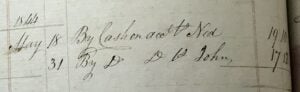 1844
May 18 By Cash on acct Ned 19 10
31 By Do Do John 17 12